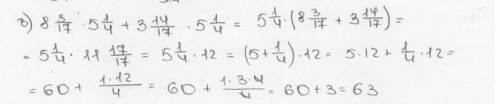 г) 8 3/17 · 5 1/4 + 3 14/17 · 5 1/4 = 5 1/4 · (8 3/17 + 3 14/17) =
= 5 1/4 · 11 17/17 = 5 1/4 · 12 = (5 + 1/4) · 12 = 5 · 12 + 1/4 · 12 =
= 60 + 1·12/4 = 60 + 1·3·4/4 = 60 + 3 = 63